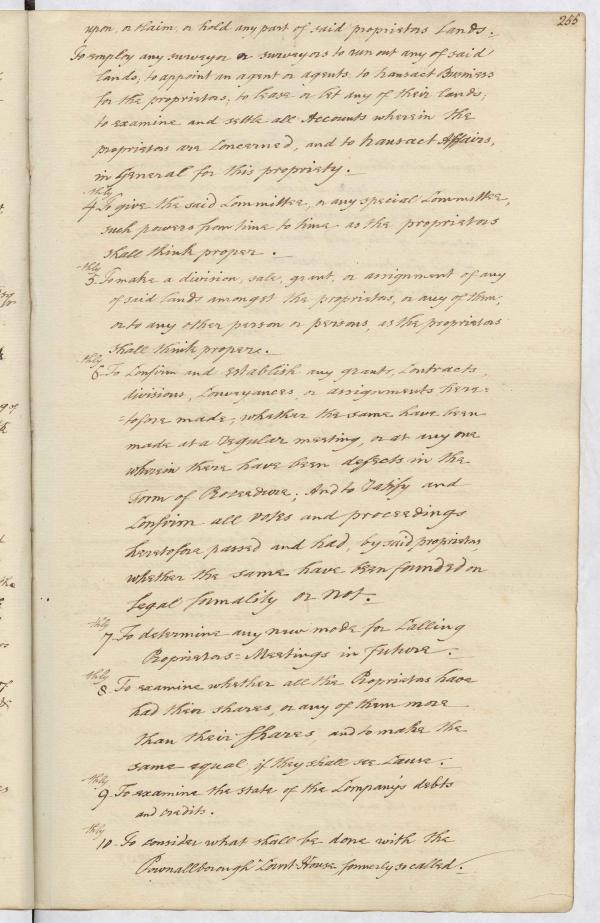 255
upon, or claim, or hold any part of said proprietors Lands.
To employ any surveyor or surveyors to run out any of said
lands; to appoint an agent or agents, to transact Business
for the proprietors; to lease or let any of their lands;
to examine and settle all Accounts wherein the
proprietors are Concerned, and to transact Affairs,
in General for this propriety.
4thly To give the said Committee, or any special Committee,
such powers from time to time as the proprietors
shall think proper.
5thly To make a division, sale, grant, or assignment of any
of said lands amongst the proprietors, or any of them,
or to any other person or persons, as the proprietors
shall think proper.
6thly To Confirm and establish any grants, Contracts,
divisions, Conveyances, or assignments here=
=tofore made; whether the same have been
made at a regular meeting, or at any one
wherein there have been defects in the
Form of Procedure; And to ratify and
Confirm all votes and proceedings
heretofore passed and had, by said proprietors,
whether the same have been founded on
legal formality or not.
7thly To determine any new mode for Calling
Proprietors=Meetings in future.
8thly To examine whether all the Proprietors have
had their shares, or any of them more
than their Shares, and to make the
same equal if they shall see Cause.
9thly To examine the state of the Company's debts
and credits.
10thly To consider what shall be done with the
Pownallborough "Court-House formerly so called.